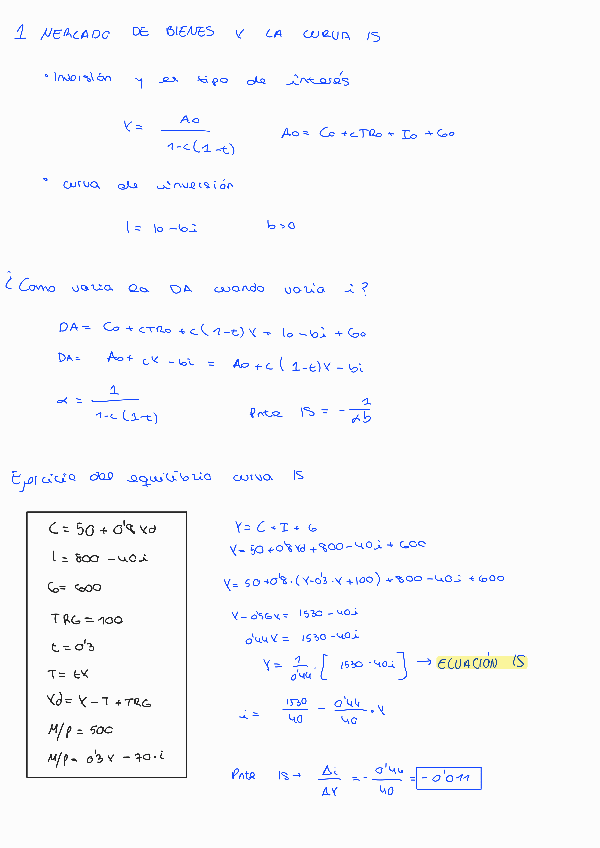 1 MERCADO DE BIENES Y LA CURVA IS
• Inversión y el tipo de interés
Y = Ao / 1-c(1-t)    Ao = Co + cTRo + Io + Go
• curva de inversión
I = Io - bi    b>0
¿Como varia la DA cuando varia i?
DA = Co + cTRo + c(1-t)Y + Io - bi + Go
DA = Ao + cY - bi = Ao + c(1-t)Y - bi
α = 1 / 1-c(1-t)    Pnte IS = - 1 / αb
Ejercicio del equilibrio curva IS
C = 50 + 0'8 Yd
I = 800 - 40i
G = 600
TRG = 100
t = 0'3
T = tY
Yd = Y - T + TRG
M/P = 500
M/P = 0'3 Y - 70·i
Y = C + I + G
Y = 50 + 0'8Yd + 800 - 40i + 600
Y = 50 + 0'8·(Y - 0'3·Y + 100) + 800 - 40i + 600
Y - 0'56Y = 1530 - 40i
0'44Y = 1530 - 40i
Y = 1 / 0'44 · [1530 - 40i] → ECUACIÓN IS
i = 1530 / 40 - 0'44 / 40 · Y
Pnte IS → Δi / ΔY = - 0'44 / 40 = - 0'011